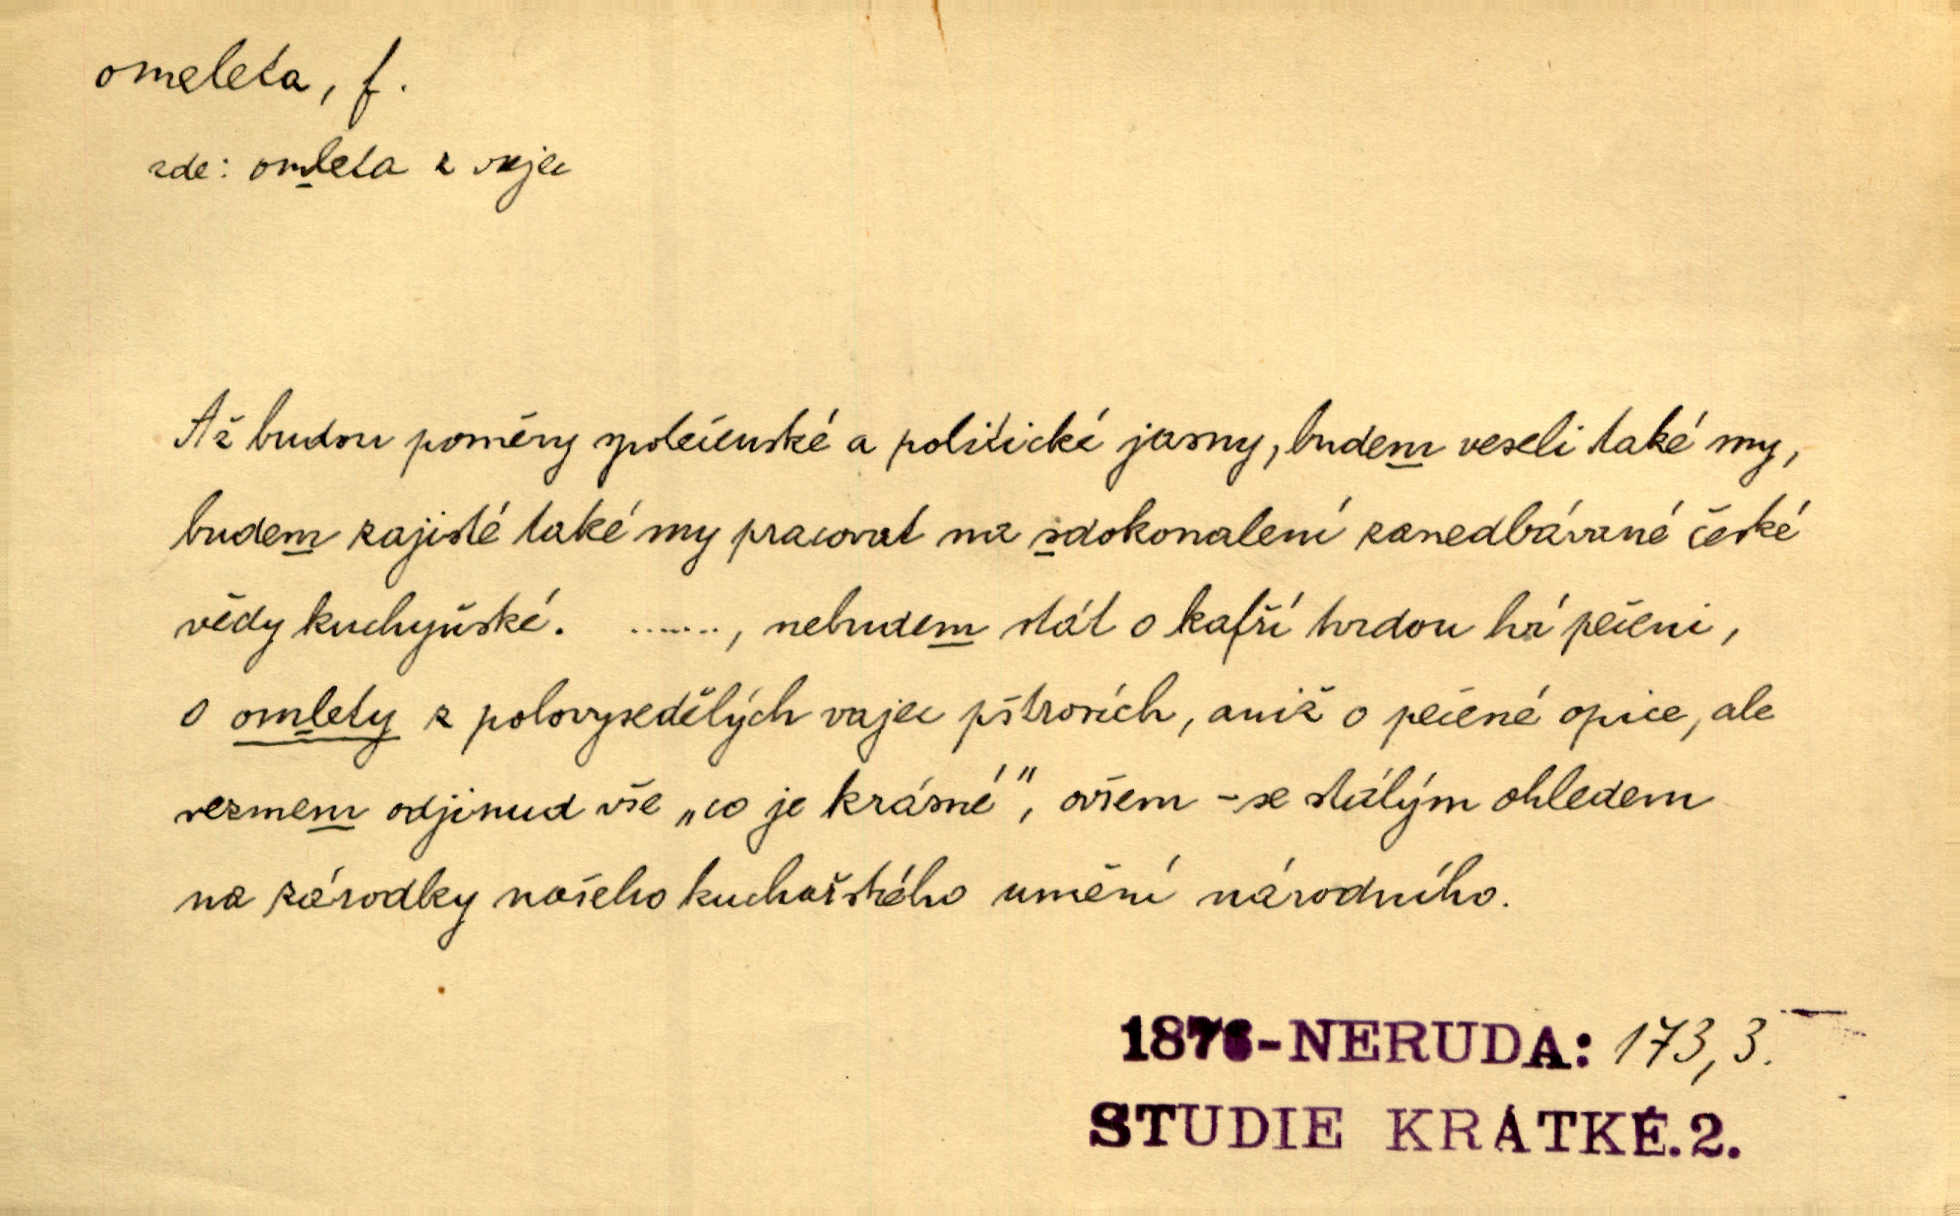 omeleta, f.
zde: omleta z vajec
Až budou poměry společenské a politické jasny, budem veseli také my,
budem zajisté také my pracovat na sdokonalení zanedbávané české
vědy kuchyňské. ......., nebudem stát o kafří tvrdou hří pečeni,
o omlety z polovysedělých vajec pštrosích, aniž o pečené opice, ale
vezmem odjinud vše „co je krásné", ovšem - se stálým ohledem
na zárodky našeho kuchařského umění národního.
1876-NERUDA: 173,3.
STUDIE KRÁTKÉ.2.